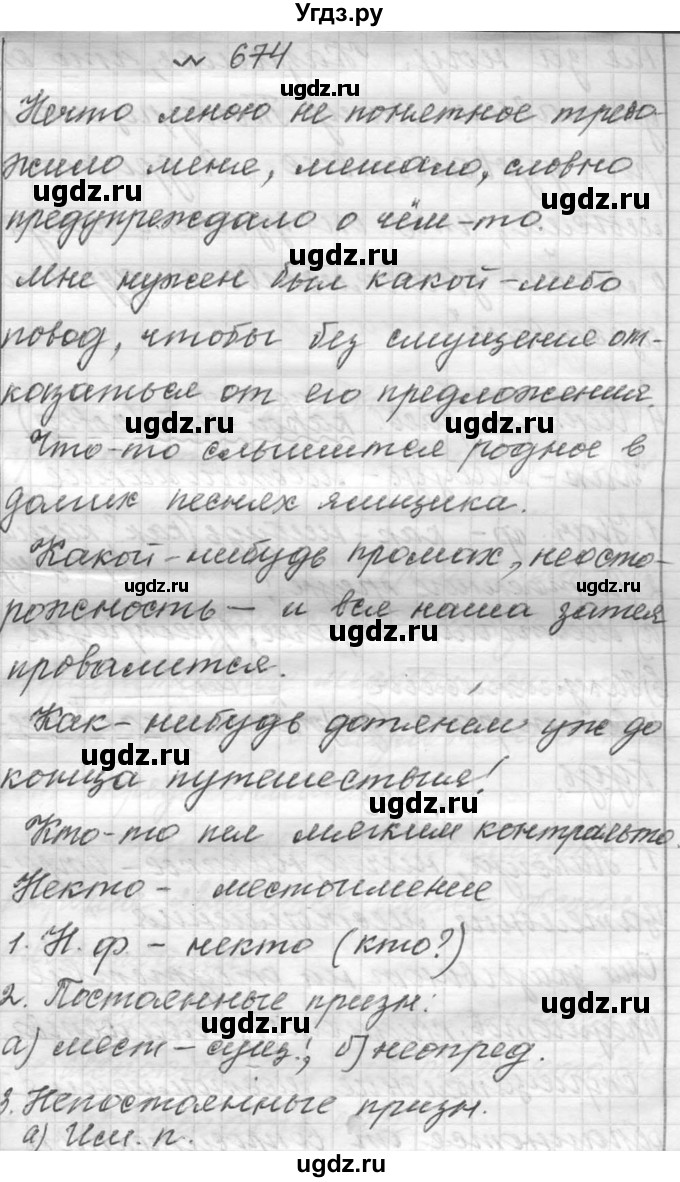 Угдз.ру
№ 674
ugdz.ru
Нечто мною не понятное трево-
жило меня, мешало, словно
ugdz.ru
ugdz.ru
предупреждало о чём-то.
ugdz.ru
Мне нужен был какой-либо
повод, чтобы без смущения от-
казаться от его предложения.
ugdz.ru
ugdz.ru
Что-то слышится родное в
долгих песнях ямщика.
Какой-нибудь промах, неосто-
ugdz.ru
ugdz.ru
рожность – и вся наша затея
ugdz.ru
провалится.
Как-нибудь дотянем уж до
ugdz.ru
конца путешествия!
ugdz.ru
Кто-то пел мягким контральто.
Некто – местоимение
1. Н. ф. – некто (кто?)
2. Постоянные призн:
ugdz.ru
ugdz.ru
а) мест – сущ.; б) неопред.
3. Непостоянные призн.
а) Им. п.
ugdz.ru
ugdz.ru